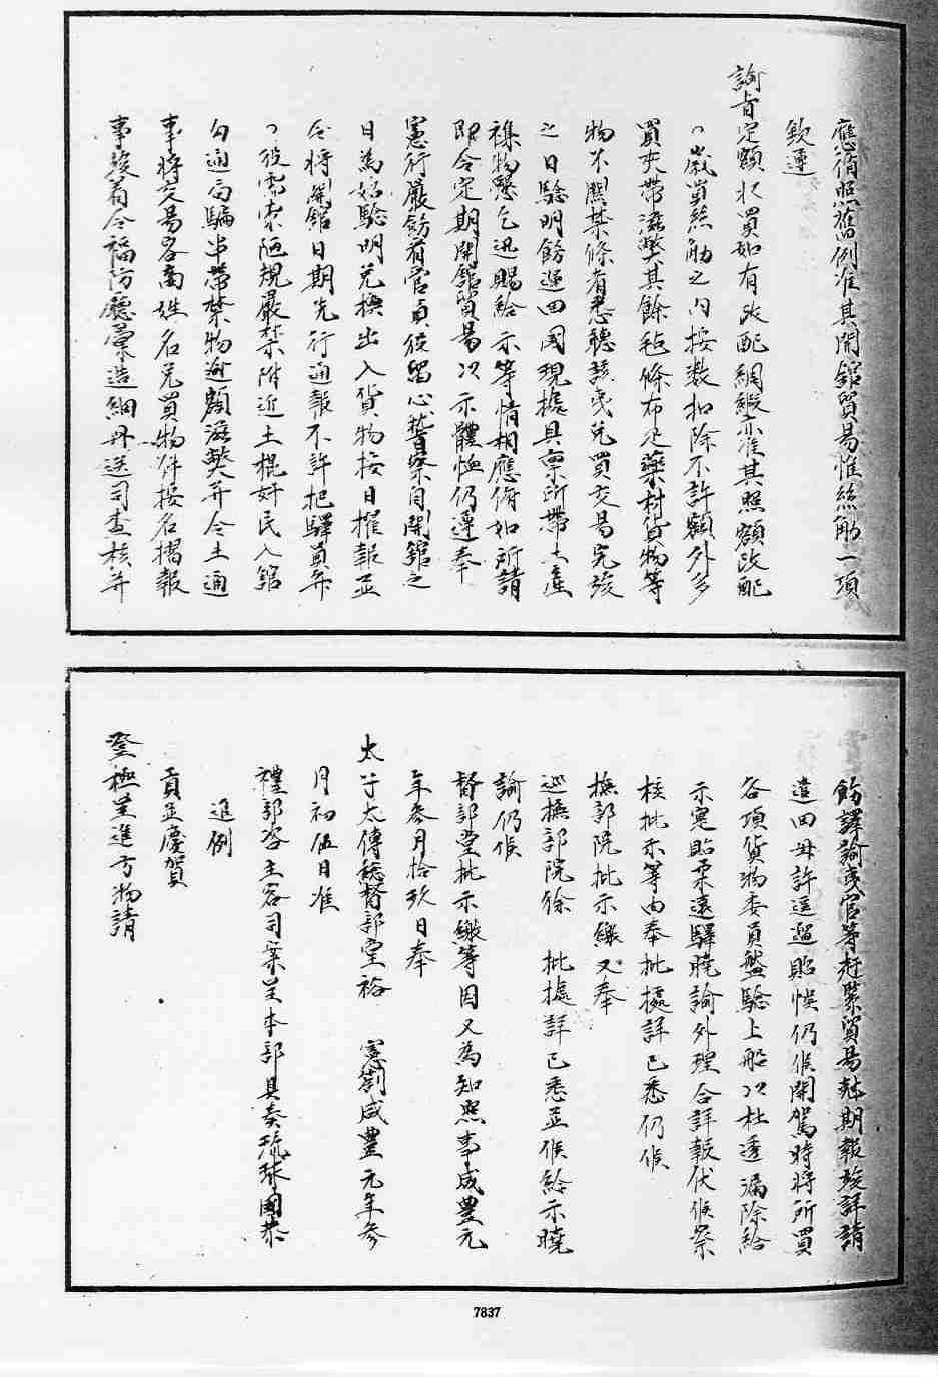 應循照舊例准其開館貿易惟絲觔一項
欽遵
諭旨定額收買如有改配綢緞亦准其照額改配
歲買絲觔之內按數扣除不許額外多
買夾帶滋弊其餘毡條布疋藥材貨物等
物不與其條者悉聽該夷兌買交易完竣
之日驗明飭運回國現據具稟所帶土產
襍物懇乞迅賜給示等情相應俯如所請
即令定期開館貿易以示體恤仍遵奉
憲行嚴飭看官員役留心誓察自開館之
日為始驗明兌換出入貨物按日摺報並
令將開館日期先行通報不許把驛員弁
役需索陋規嚴禁附近土棍奸民入館
勾通局騙串帶禁物逾額滋獘并令土通
事將交易客商姓名兌買物件按名摺報
事竣着令福防廳彙造細冊送司查核并
飭譯諭夷官等赶緊貿易尅期報竣詳請
遣回毋許逗遛貽悞仍候開駕時將所買
各項貨物委員盤驗上船以杜透漏除給
示寬貼柔遠驛曉諭外理合詳報伏候察
核批示等由奉批據詳已悉仍候
撫部院批示繳又奉
巡撫部院徐 批據詳已悉並候給示曉
諭仍候
督部堂批示繳等因又為知照事咸豐元
年叁月拾玖日奉
太子太傅總督部堂裕 憲劄咸豐元年叁
月初伍日准
禮部咨主客司案呈本部具奏琉球國恭
進例
貢並慶賀
登極呈進方物請
7837